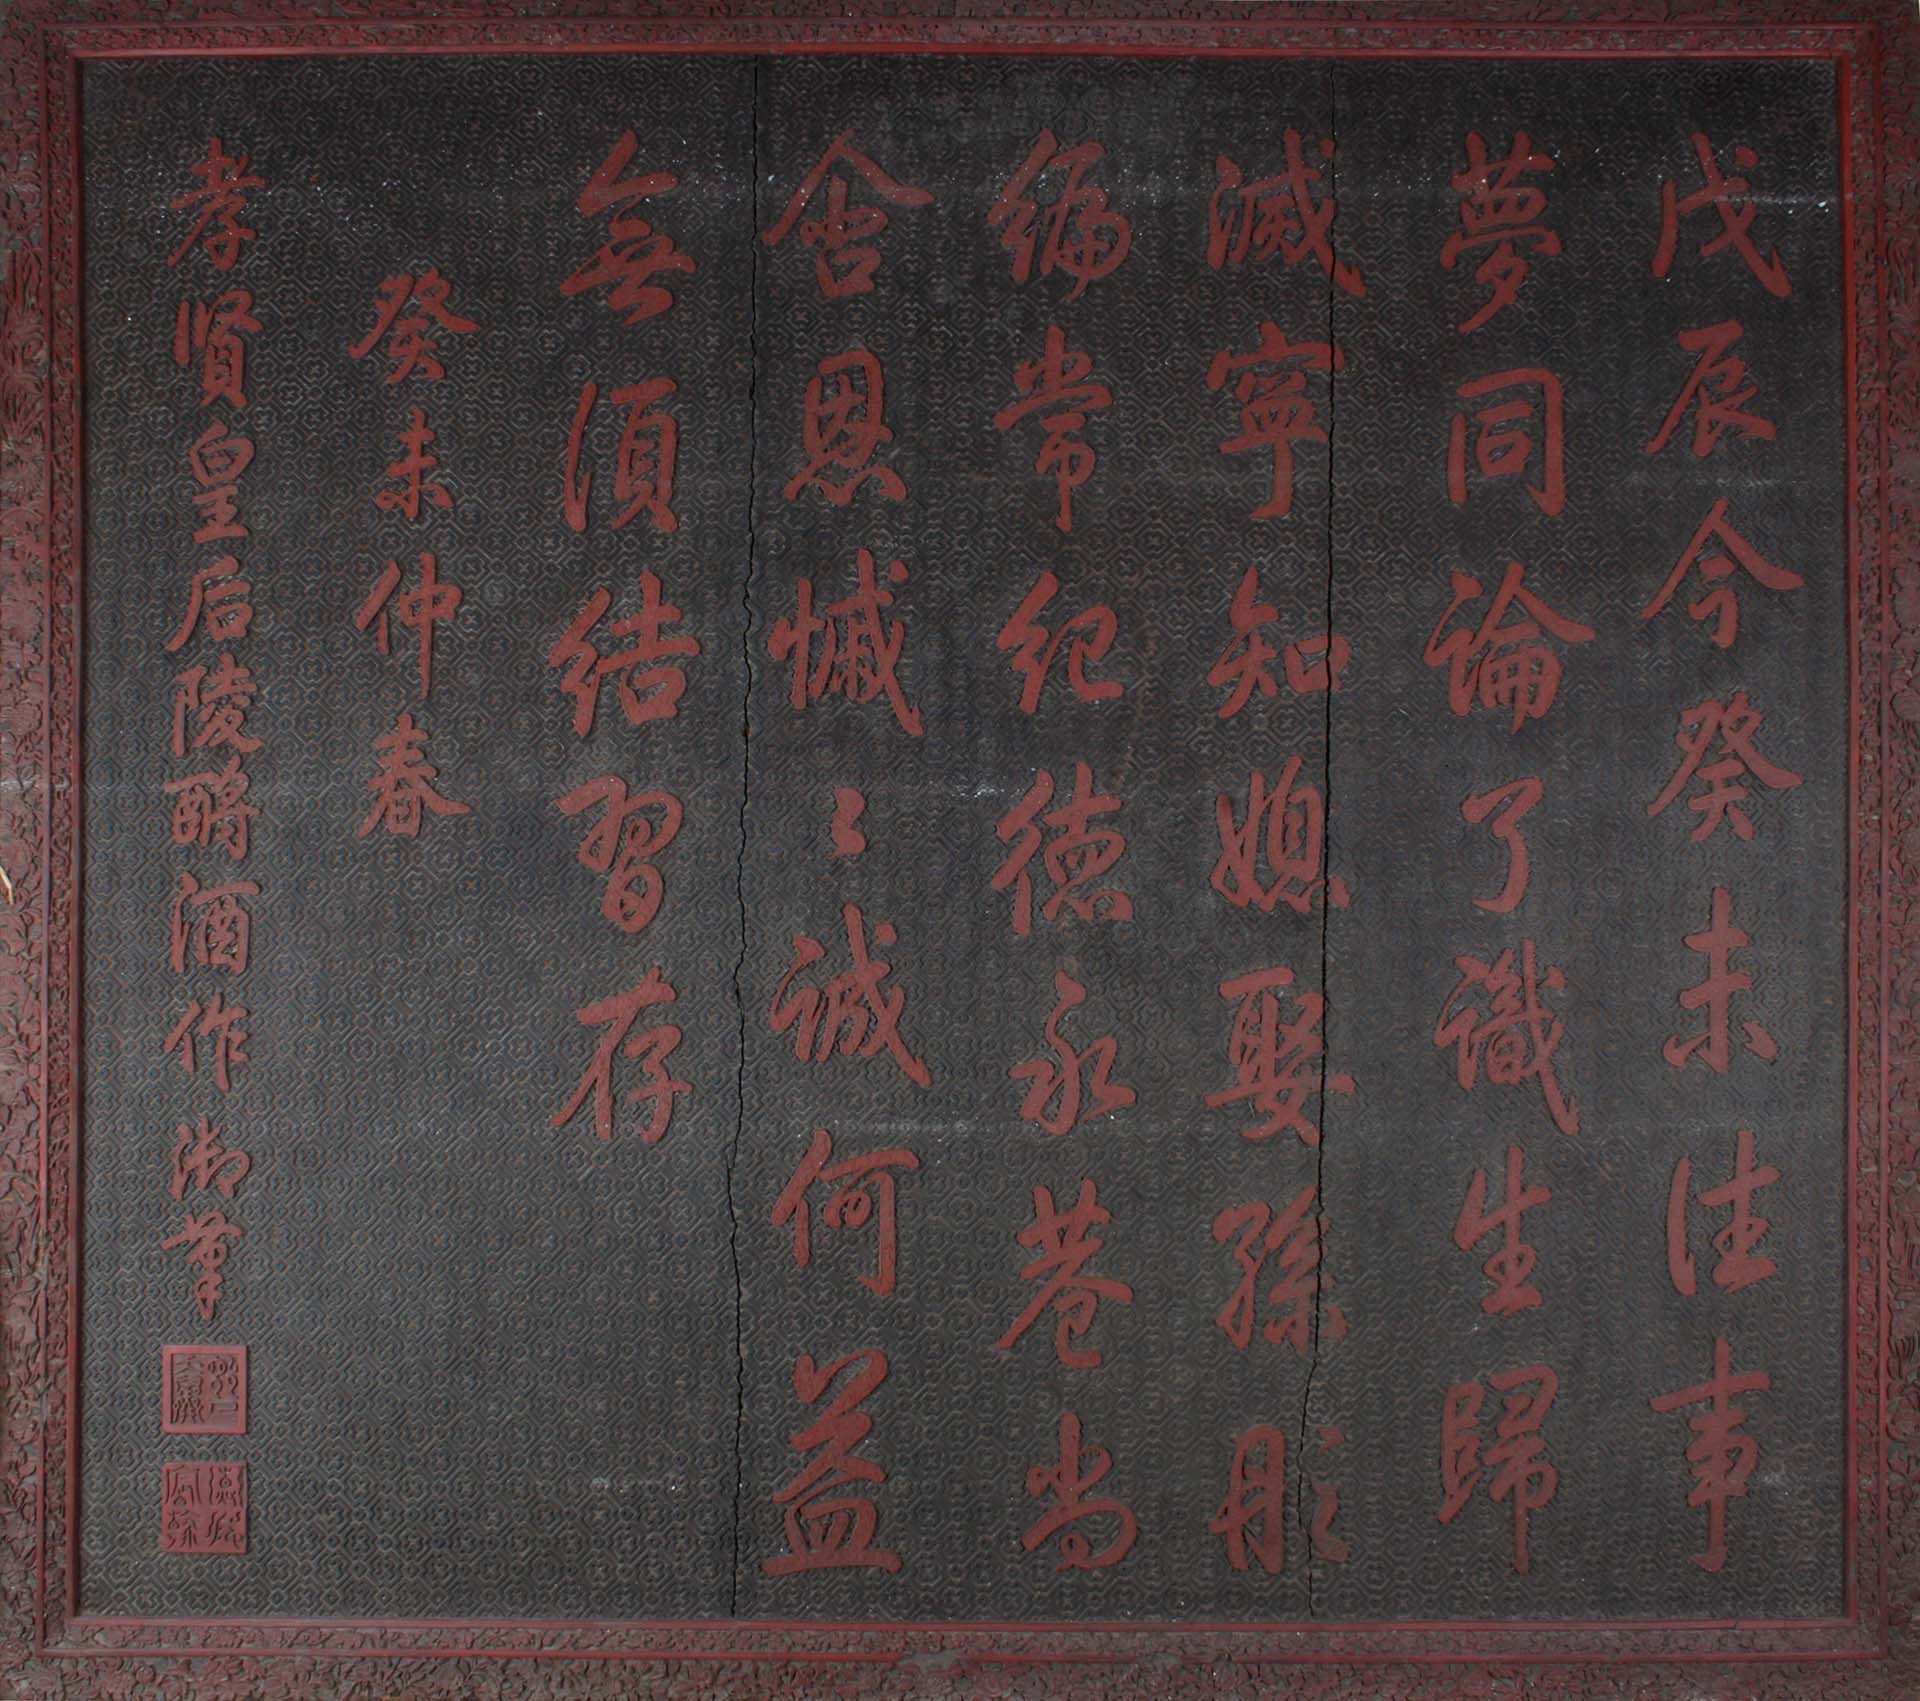 戊辰今癸未往事
夢同論了識生歸
滅寧知媳娶孫彤
編常紀德永巷尚
含恩慽〻誠何益
無須結習存
癸未仲春
孝賢皇后陵酹酒作御筆